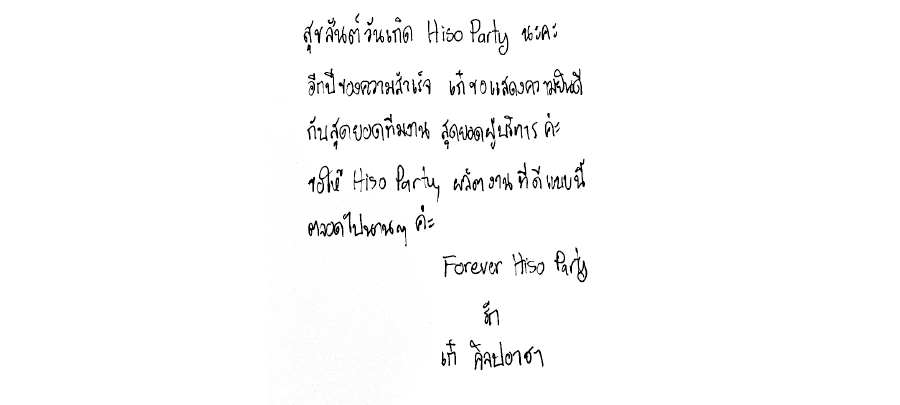 สุขสันต์วันเกิด Hiso Party นะคะ
อีกปีของความสำเร็จ เก๋ขอแสดงความยินดี
กับสุดยอดทีมงาน สุดยอดผู้บริหาร ค่ะ
ขอให้ Hiso Party ผลิตงานที่ดีแบบนี้
ตลอดไปนานๆ ค่ะ
Forever Hiso Party
รัก
เก๋ ศิลปอาชา